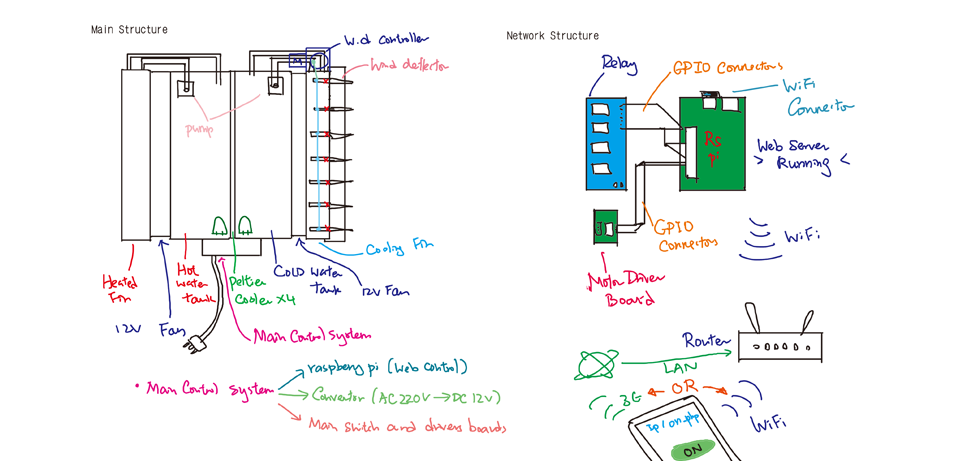 Main Structure
W.d controller
Wind deflector
pump
Heated
Fin
12V Fan
Hot
water
tank
Peltier
Cooler x4
COLD water
tank
12V Fan
Cooling Fin
Main Control system
• Main Control system
raspberry pi (Web control)
Convertor (AC 220V → DC 12V)
Main switch and drivers boards
Network Structure
Relay
GPIO Connectors
WiFi
Connector
Rs
pi
Web Server
> Running <
GPIO
Connectors
WiFi
Motor Driver
Board
Router
LAN
3G
OR
WiFi
ip/on.php
ON